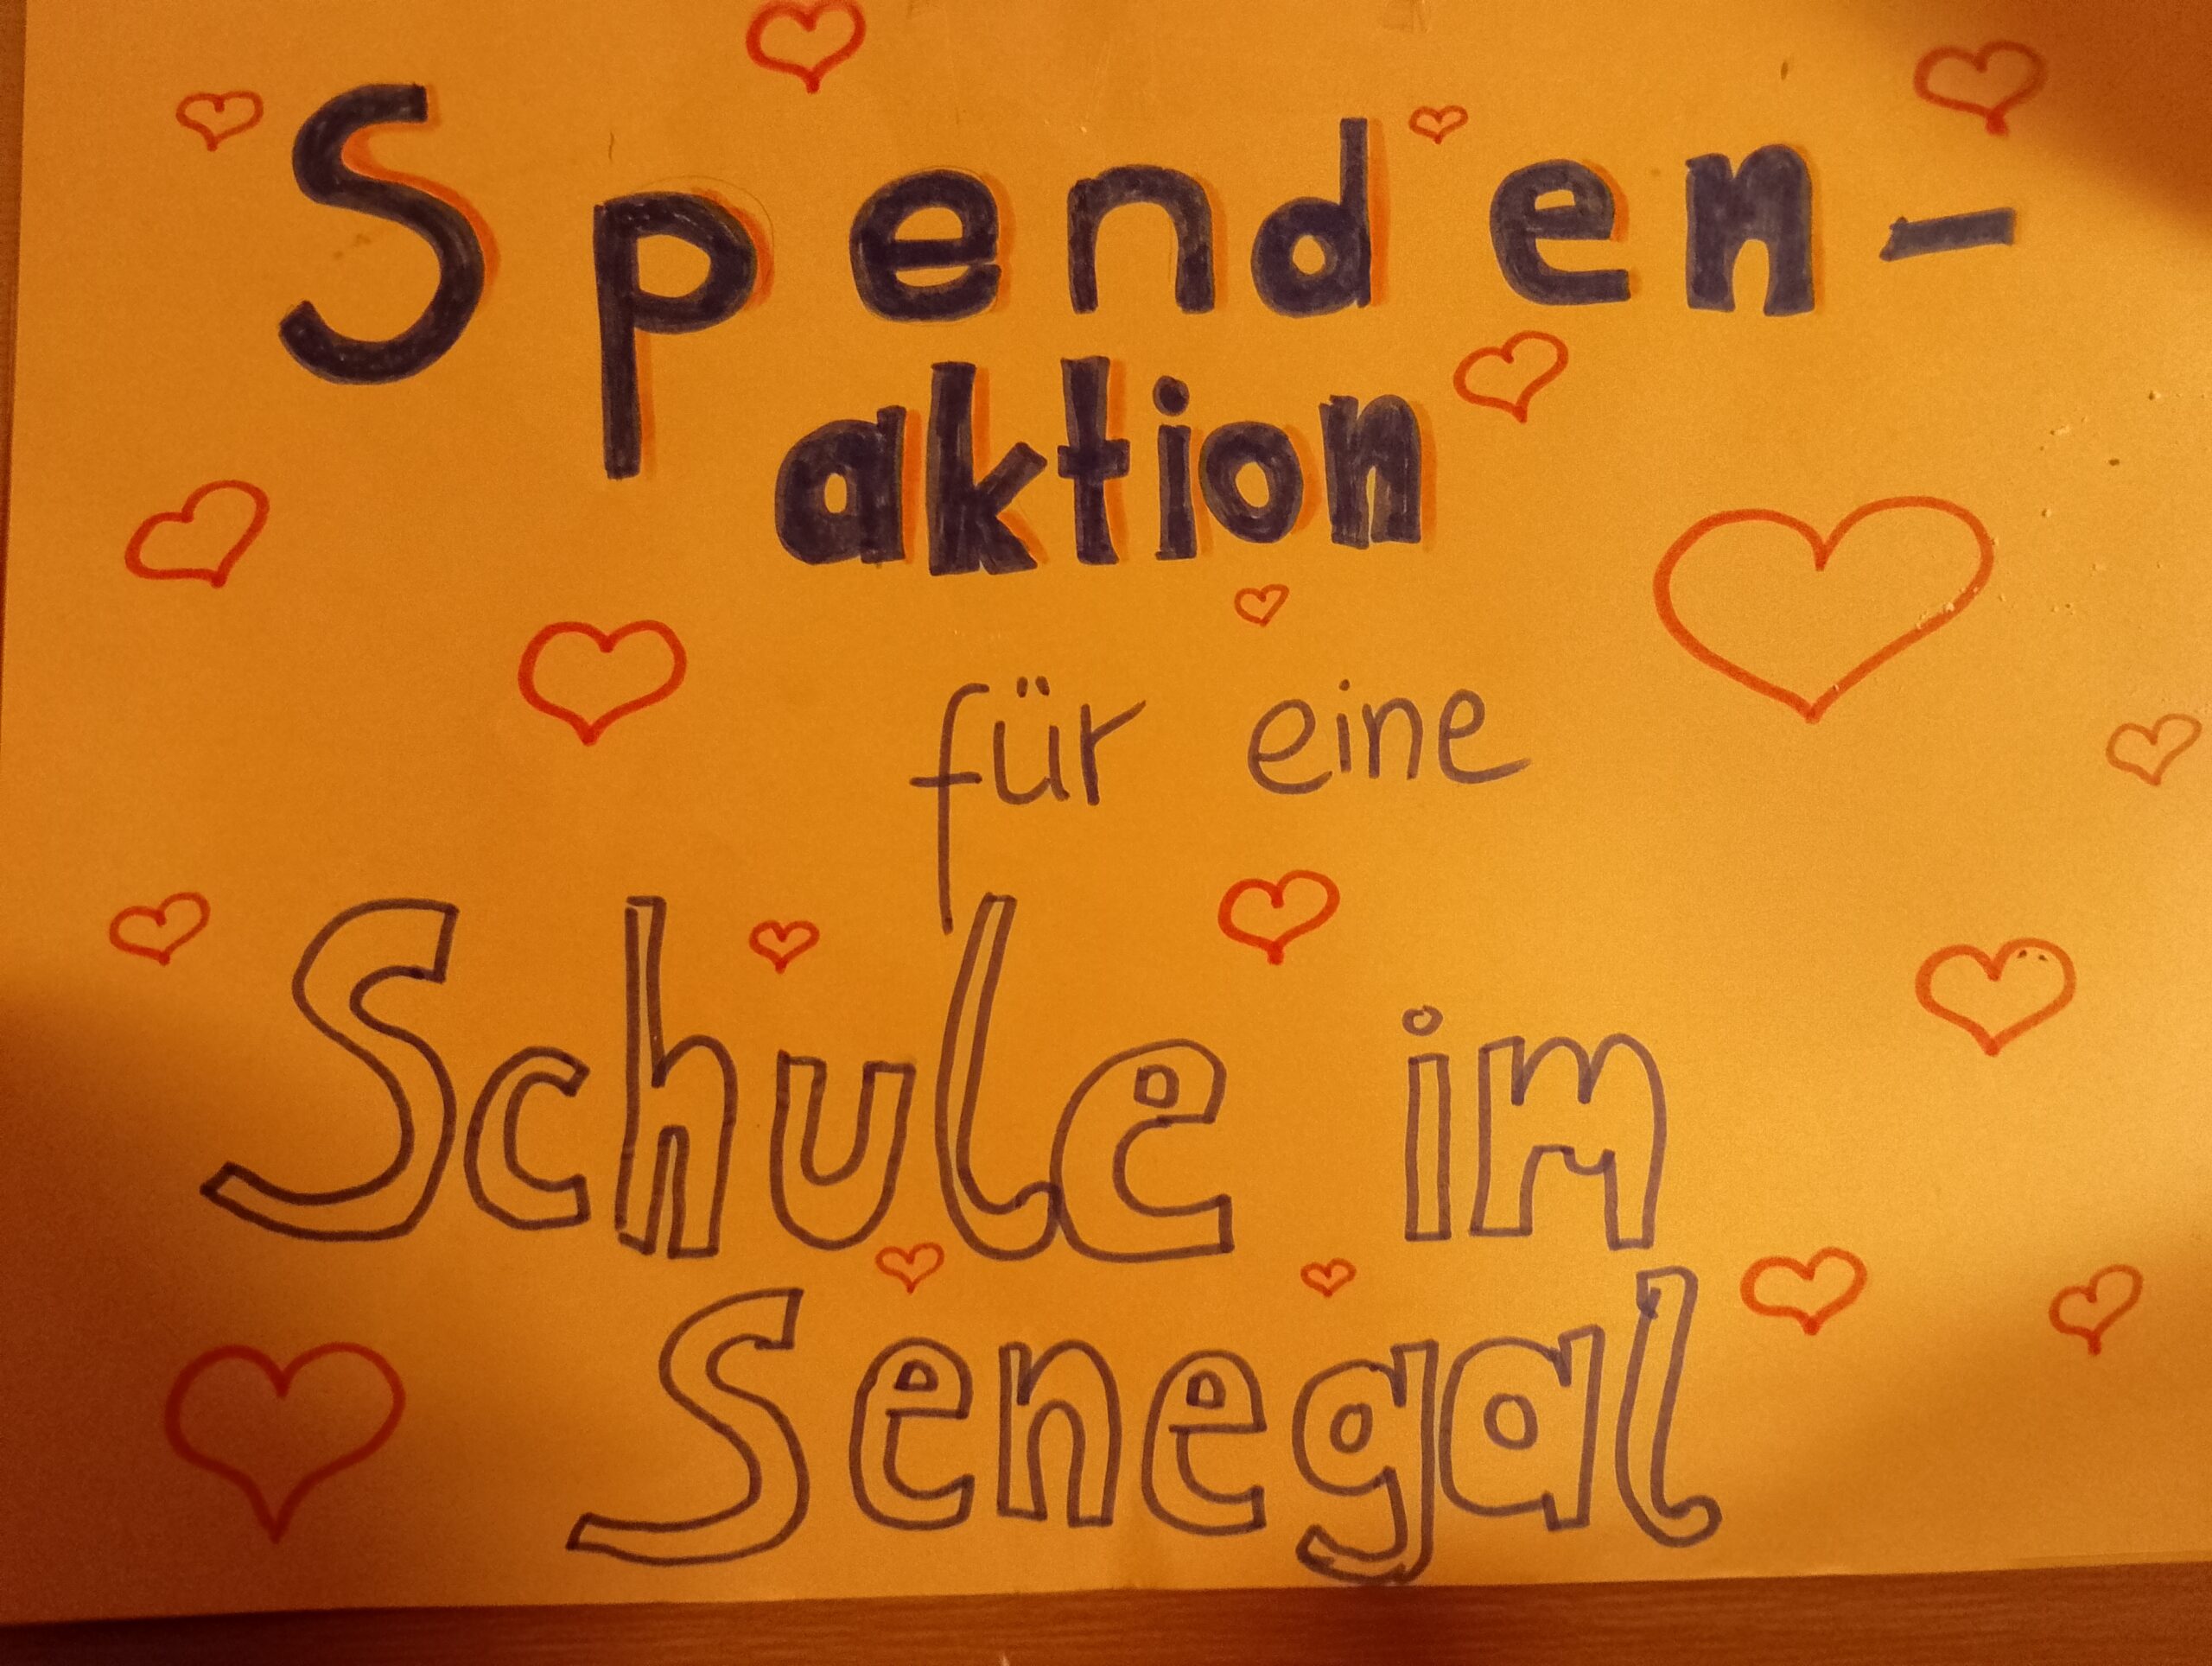 Spenden-
aktion
für eine
Schule im
Senegal